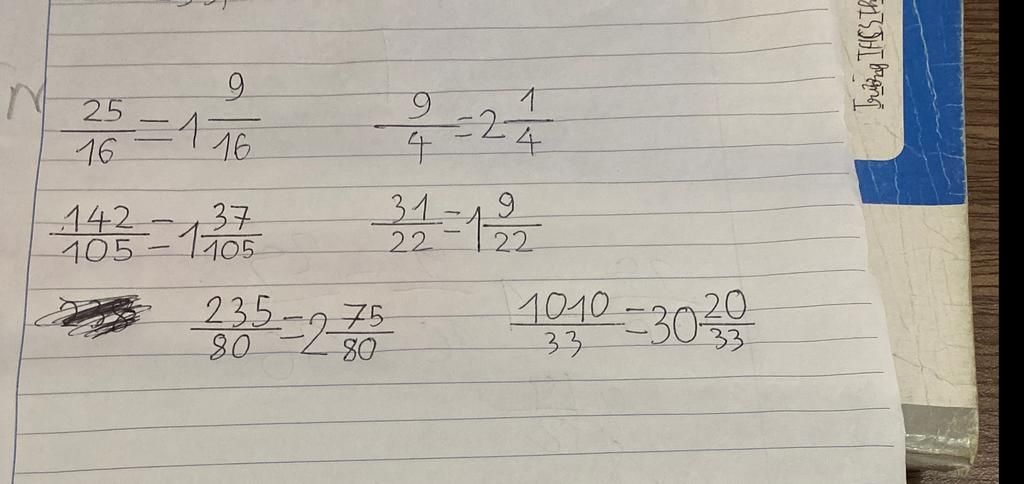 25/16 = 1 9/16 9/4 = 2 1/4
142/105 = 1 37/105 31/22 = 1 9/22
235/80 = 2 75/80 1010/33 = 30 20/33
Trường